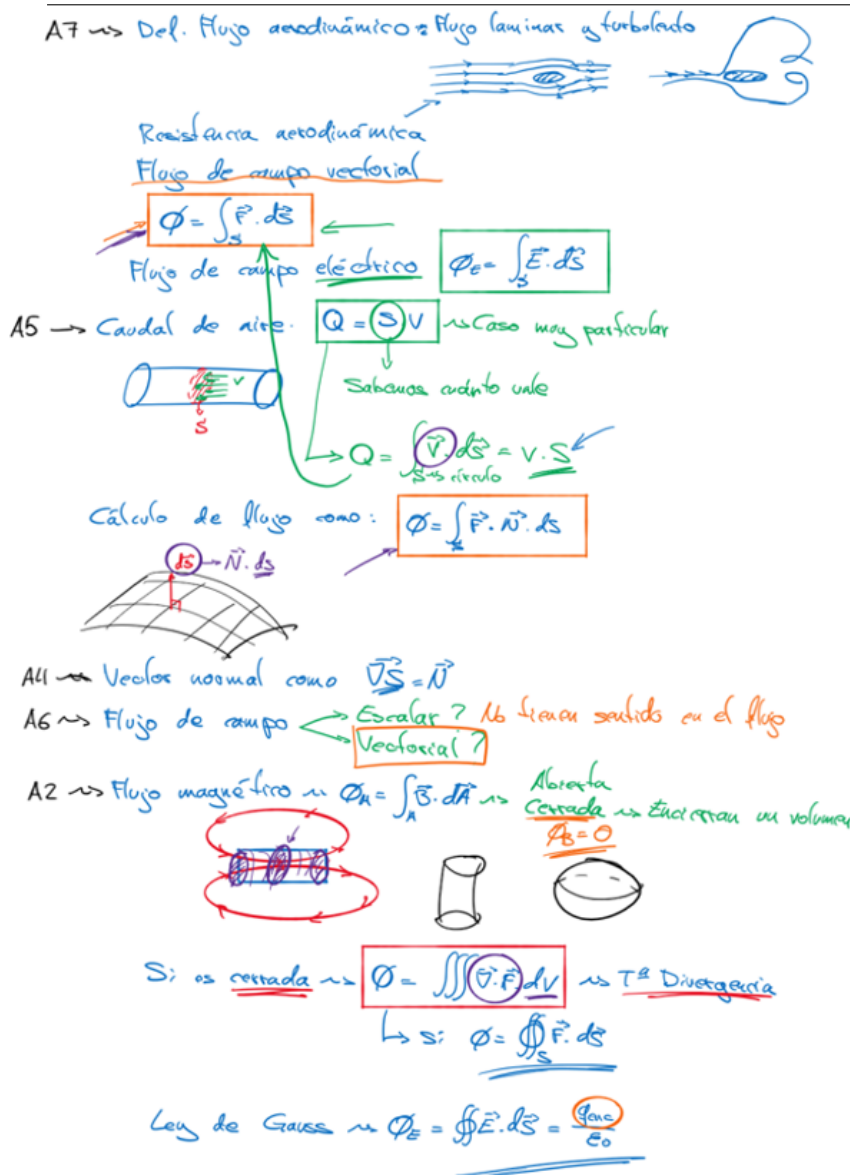 A7 ⇝ Def. Flujo aerodinámico = Flujo laminar y turbolento
Resistencia aerodinámica
Flujo de campo vectorial
Ø = ∫_S F⃗ · dS⃗
Flujo de campo eléctrico Ø_E = ∫_S E⃗ · dS⃗
A5 → Caudal de aire. Q = S V ⇝ Caso muy particular
V
S
Sabemos cuánto vale
Q = ∫_{S ⇝ círculo} V⃗ · dS⃗ = V · S
Cálculo de flujo como: Ø = ∫_S F⃗ · N⃗ · ds
dS⃗ → N⃗ · ds
A4 ⇝ Vector normal como ∇⃗S = N⃗
A6 ⇝ Flujo de campo → Escalar? No tienen sentido en el flujo
→ Vectorial?
A2 ⇝ Flujo magnético ⇝ Ø_M = ∫_A B⃗ · dA⃗ ⇝ Abierta
Cerrada ⇝ Encierran un volumen
Ø_B = 0
Si es cerrada ⇝ Ø = ∭ ∇⃗ · F⃗ dV ⇝ Tª Divergencia
↳ Si Ø = ∯_S F⃗ · dS⃗
Ley de Gauss ⇝ Ø_E = ∯ E⃗ · dS⃗ = q_enc / ε₀